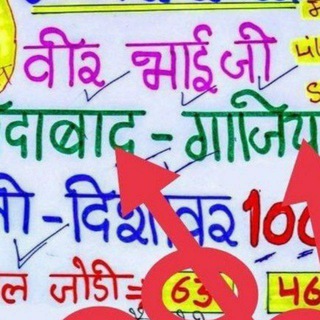 वीर भाई जी
दाबाद - गाजिय
दिशावर 100
ल जोडी = 63 46